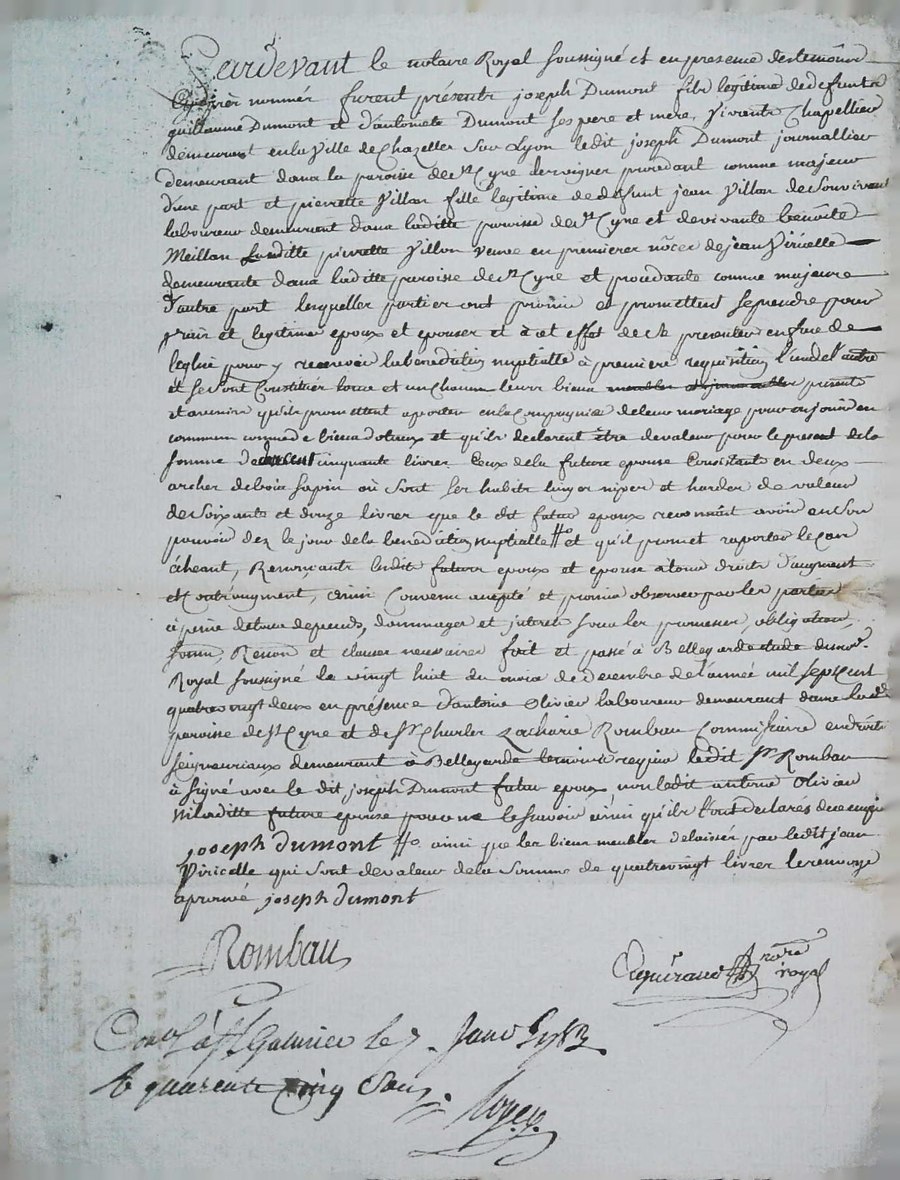 Pardevant le notaire Royal soussigné et en presence des temoins
apres nommés furent présents joseph Dumont fils légitime de defunts
guillaume Dumont et d'antoinete Dumont ses pere et mere, vivants Chapellier
demeurant en la Ville de Chazelles sur Lyon ledit joseph Dumont journallier
demeurant dans la paroisse de st Cyre les vignes procedant comme majeur
d'une part et pierrette Villon fille legitime de defunt jean Villon de Souvivant
laboureur demeurant dans laditte paroisse de st Cyre et de vivante benoite
Meillan laditte pierrette Villon veuve en premieres nôces de jean Viricelle
demeurante dans laditte paroisse de st Cyre et procedante comme majeure
d'autre part lesquelles parties ont promis et promettent se prendre pour
vrais et legitimes epoux et epouse et à cet effet de se presenter en face de
l'eglise pour y recevoir la benediction nuptialle à premiere requisition l'un de l'autre
et se sont Constitués tous et un chacun leurs biens meubles et immeubles presents
et avenirs qu'ils promettent aporter en la Compagnie de leur mariage pour en jouir en
commun comme de biens dotaux et qu'ils declarent être de valeur pour le present de la
somme de cinquante livres Ceux de la future epouse Consistants en deux
arches de bois sapin où sont ses habits linges nipes et hardes de valeur
de soixante et douze livres que le dit futur epoux reconnait avoir en son
pouvoir dez le jour de la benediction nuptialle # et qu'il promet raporter le cas
écheant, Renonçants lesdits futurs epoux et epouse a tous droits d'augment
et Contraugment, ainsi Convenu accepté et promis observer par les parties
à peine de tous depends, dommages et interets sous les promesses, obligations,
soumn, Renon et clauses necessaires fait et passé à Bellegarde etude du nore
Royal soussigné le vingt huit du mois de decembre de l'année mil sept cent
quatre vingt deux en présence d'antoine Olivier laboureur demeurant dans ladte
paroisse de st Cyre et de sr Charles Zacharie Rombau Commissaire en droits
seigneuriaux demeurant à Bellegarde temoins requis ledit sr Rombau
a signé avec le dit joseph Dumont futur epoux non ledit antoine Olivier
ni laditte future epouse pour ne le savoir ainsi qu'ils l'ont declarés de ce enquis
joseph dumont # ainsi que les biens meubles delaissés par ledit jean
Viricelle qui sont de valeur de la somme de quatre vingt livres le renvoye
aprouvé joseph dumont
Rombau
nore
royal
Conlé à st Galmier le 7 Janv 1783
R quarente cinq sous